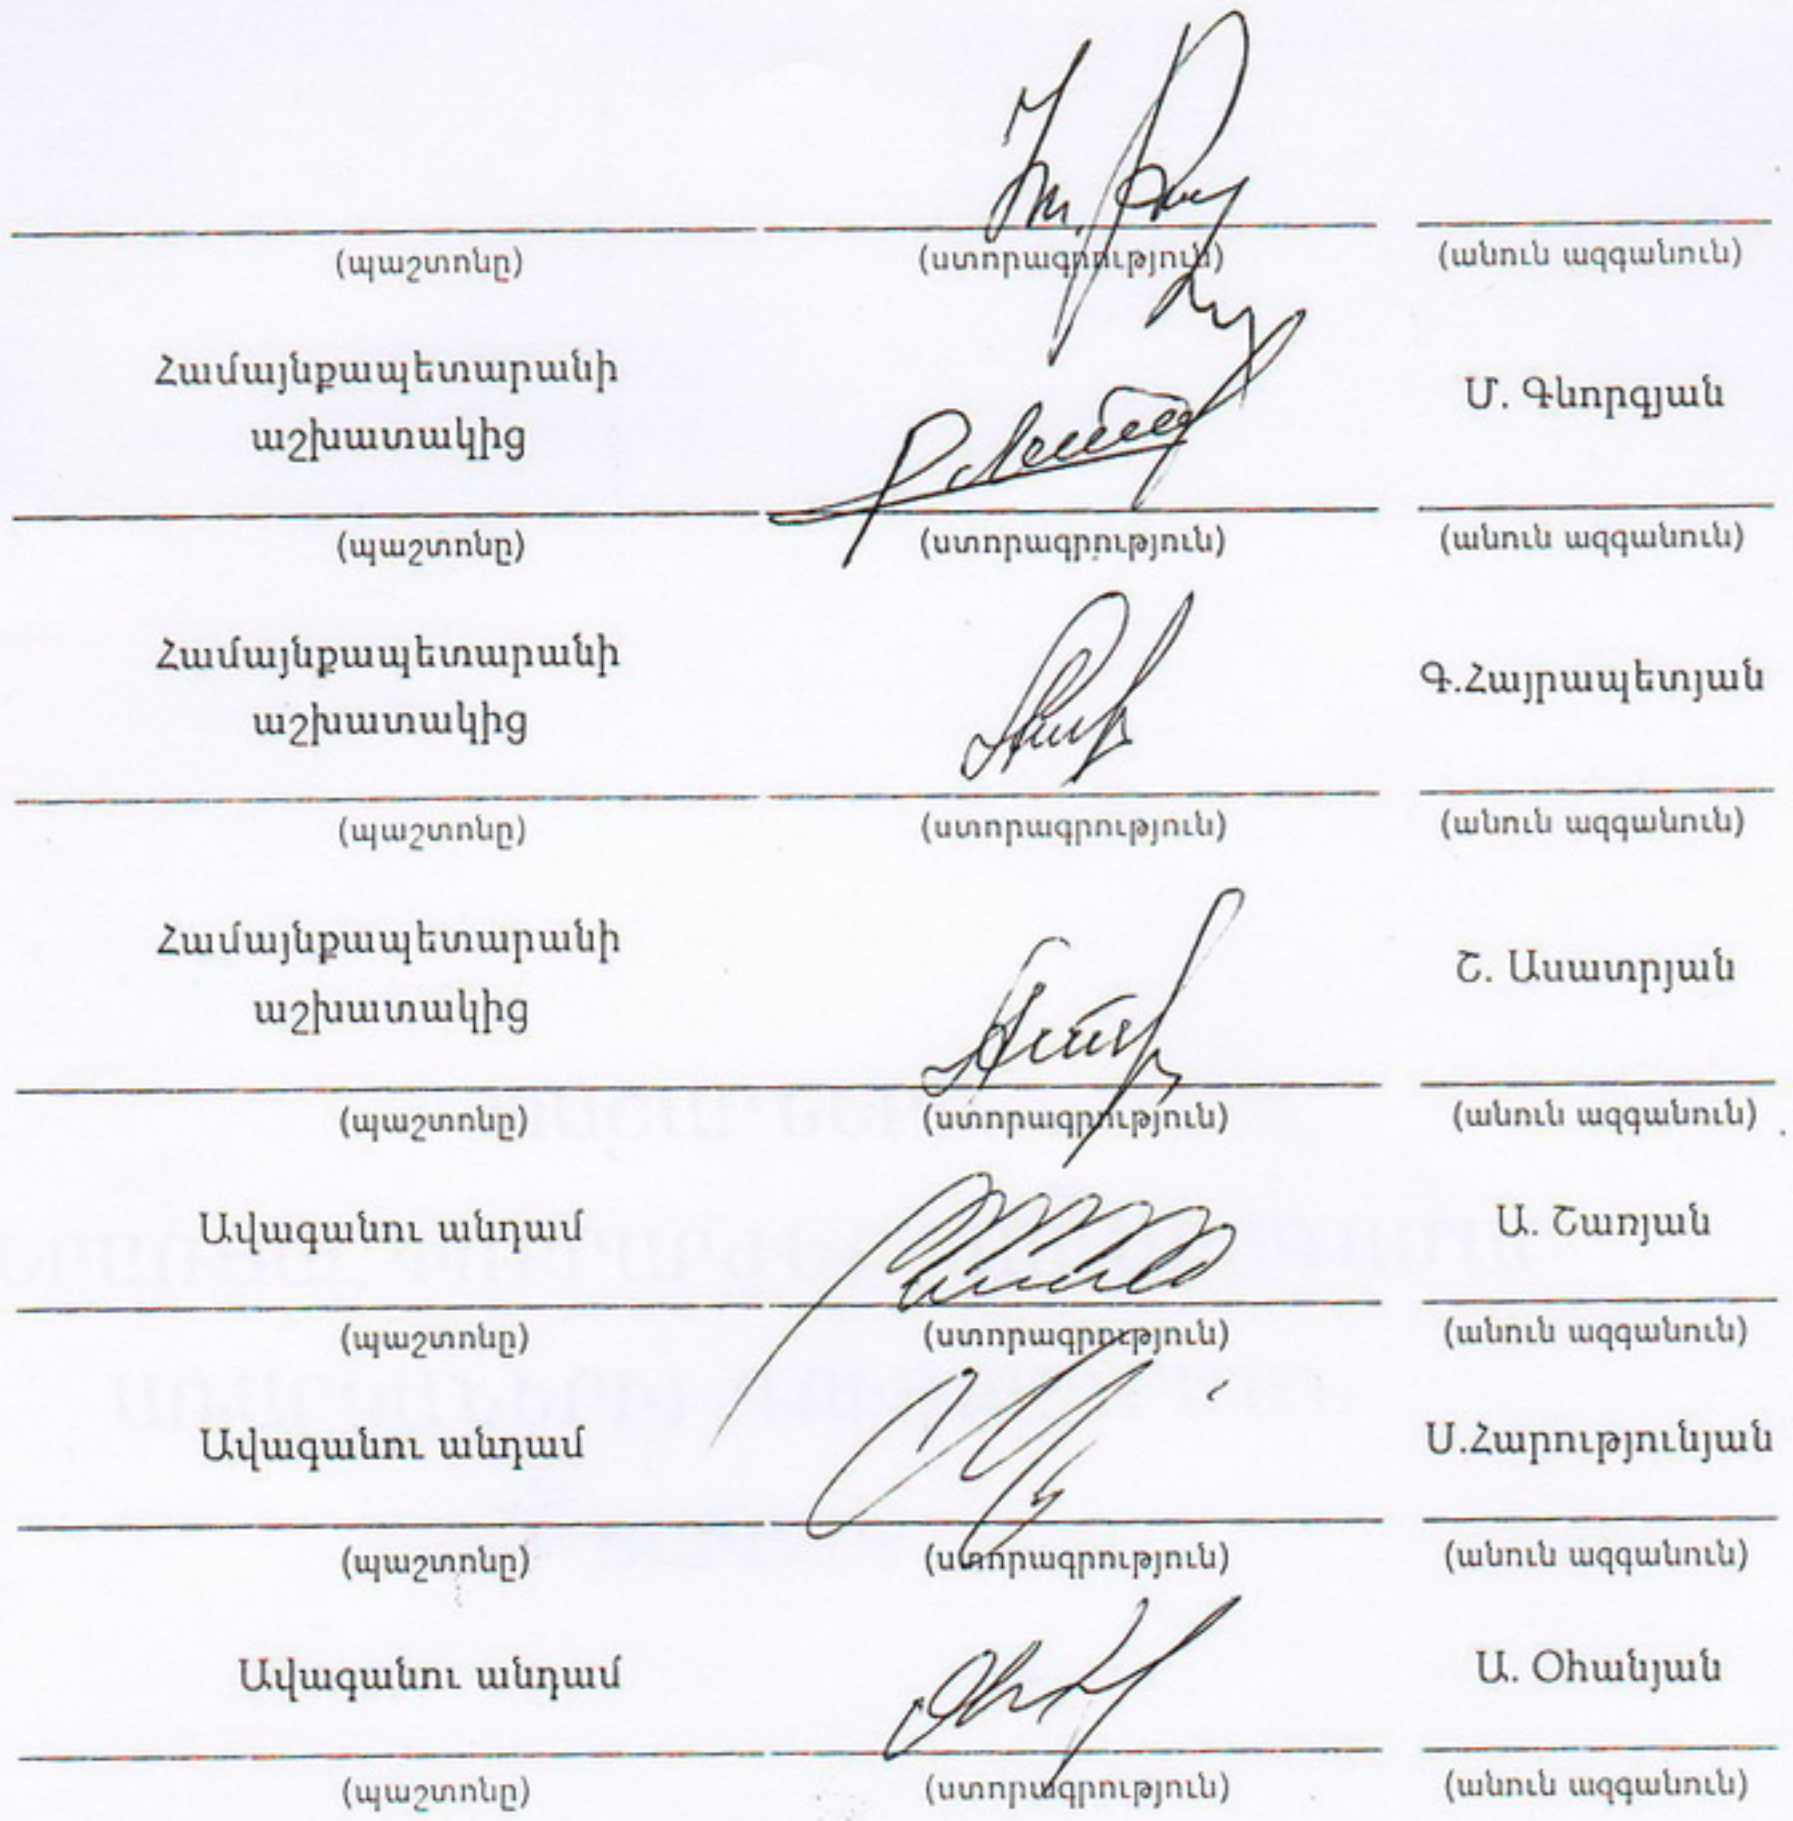 (պաշտոնը) (ստորագրություն) (անուն ազգանուն)
Համայնքապետարանի
աշխատակից
Մ. Գևորգյան
(պաշտոնը) (ստորագրություն) (անուն ազգանուն)
Համայնքապետարանի
աշխատակից
Գ.Հայրապետյան
(պաշտոնը) (ստորագրություն) (անուն ազգանուն)
Համայնքապետարանի
աշխատակից
Շ. Ասատրյան
(պաշտոնը) (ստորագրություն) (անուն ազգանուն)
Ավագանու անդամ Ա. Շառյան
(պաշտոնը) (ստորագրություն) (անուն ազգանուն)
Ավագանու անդամ Ս.Հարությունյան
(պաշտոնը) (ստորագրություն) (անուն ազգանուն)
Ավագանու անդամ Ա. Օհանյան
(պաշտոնը) (ստորագրություն) (անուն ազգանուն)